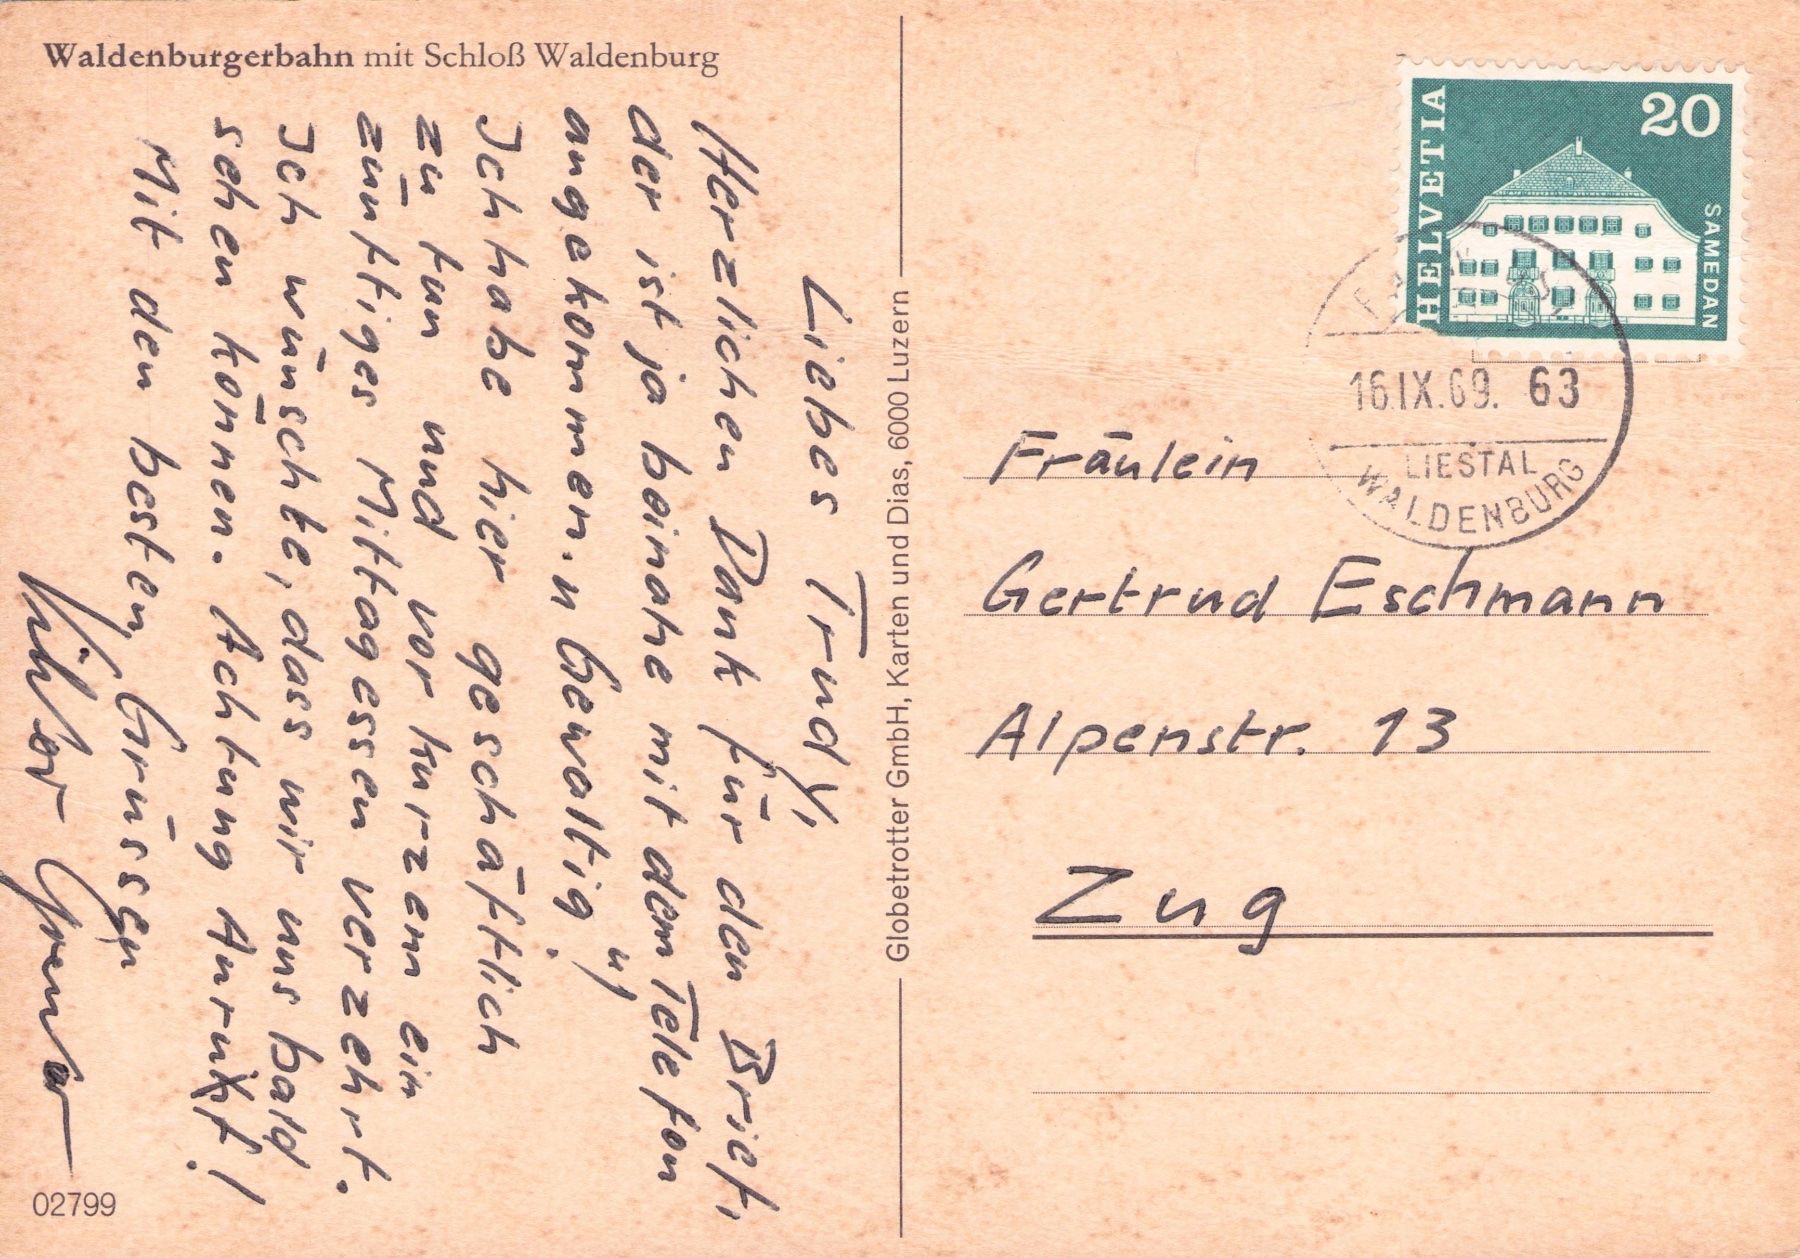 Waldenburgerbahn mit Schloß Waldenburg
Liebes Trudy,
Herzlichen Dank für den Brief,
der ist ja beinahe mit dem Telefon
angekommen. "Gewaltig"!
Ich habe hier geschäftlich
zu tun und vor kurzem ein
zünftiges Mittagessen verzehrt.
Ich wünschte, dass wir uns bald
sehen können. Achtung Anruf!
Mit den besten Grüssen
02799
Globetrotter GmbH, Karten und Dias, 6000 Luzern
HELVETIA
20
SAMEDAN
16.IX.69. 63
LIESTAL
WALDENBURG
Fräulein
Gertrud Eschmann
Alpenstr. 13
Zug